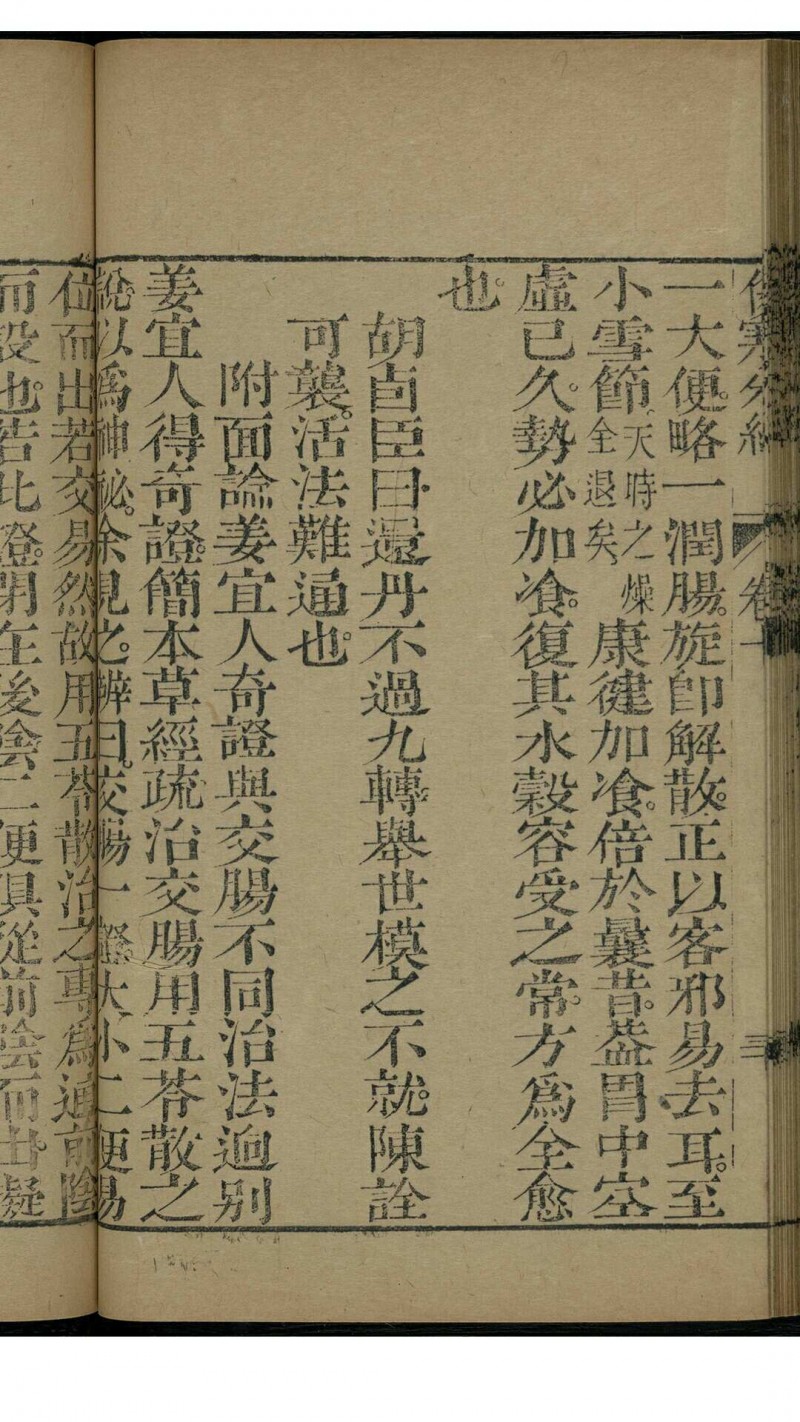 一大便略一潤腸。旋卽解散。正以客邪易去耳。至
小雪節、天時之燥全退矣、康健加飧。倍於曩昔。葢胃中空
虛已久。勢必加飧。復其水穀容受之常。方爲全愈
也。
胡卣臣曰。還丹不過九轉。舉世模之不就。陳詮
可襲。活法難通也。
附面論姜宜人奇證與交腸不同治法逈别
姜宜人得奇證。簡本草經疏治交腸用五苓散之
說以爲神秘。余見之。辨曰。交腸一證大小二便易
位而出若交易然故用五苓散治之專爲通前陰
而設也。若此證。閉在後陰二便俱從前陰而出。疑